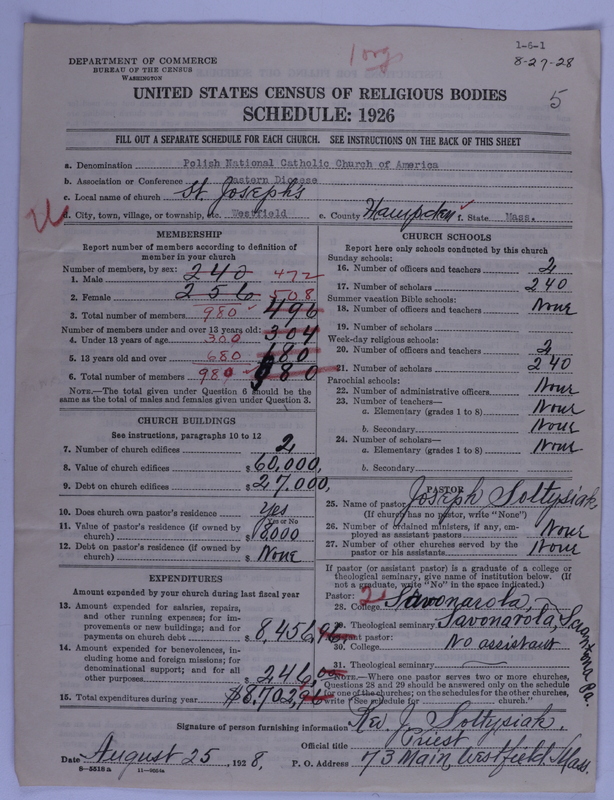 1 org
1-6-1
8-27-28
5
DEPARTMENT OF COMMERCE
BUREAU OF THE CENSUS
WASHINGTON
UNITED STATES CENSUS OF RELIGIOUS BODIES
SCHEDULE: 1926
FILL OUT A SEPARATE SCHEDULE FOR EACH CHURCH. SEE INSTRUCTIONS ON THE BACK OF THIS SHEET
a. Denomination Polish National Catholic Church of America
b. Association or Conference Eastern Diocese
c. Local name of church St. Joseph's
d. City, town, village, or township, etc. Westfield e. County Hampden f. State Mass.
MEMBERSHIP
Report number of members according to definition of
member in your church
Number of members, by sex:
1. Male 240 472
2. Female 256 508
3. Total number of members 980 496
Number of members under and over 13 years old:
4. Under 13 years of age 300 304
5. 13 years old and over 680 680
6. Total number of members 980 980
NOTE.—The total given under Question 6 should be
same as the total of males and females given under Question 3.
CHURCH BUILDINGS
See instructions, paragraphs 10 to 12
7. Number of church edifices 2
8. Value of church edifices $ 60,000,
9. Debt on church edifices $ 27,000,
10. Does church own pastor's residence? Yes
Yes or No
11. Value of pastor's residence (if owned by
church) $ 8,000
12. Debt on pastor's residence (if owned by
church) $ None
EXPENDITURES
Amount expended by your church during last fiscal year
13. Amount expended for salaries, repairs,
and other running expenses; for im-
provements or new buildings; and for
payments on church debt $ 8,456,96
14. Amount expended for benevolences, in-
cluding home and foreign missions; for
denominational support; and for all
other purposes $ 246,00
15. Total expenditures during year $8,702,96
CHURCH SCHOOLS
Report here only schools conducted by this church
Sunday schools:
16. Number of officers and teachers 2
17. Number of scholars 240
Summer vacation Bible schools:
18. Number of officers and teachers None
19. Number of scholars
Week-day religious schools:
20. Number of officers and teachers 2
21. Number of scholars 240
Parochial schools:
22. Number of administrative officers None
23. Number of teachers—
a. Elementary (grades 1 to 8) None
b. Secondary None
24. Number of scholars—
a. Elementary (grades 1 to 8) None
b. Secondary
PASTOR
25. Name of pastor Joseph Soltysiak,
(If church has no pastor, write "None")
26. Number of ordained ministers, if any, em-
ployed as assistant pastors None
27. Number of other churches served by the
pastor or his assistants None
If pastor (or assistant pastor) is a graduate of a college or
theological seminary, give name of institution below. (If
not a graduate, write "No" in the space indicated.)
Pastor: 2
28. College Savonarola,
29. Theological seminary Savonarola, Scranton, Pa.
Assistant pastor:
30. College No assistant
31. Theological seminary
NOTE.—Where one pastor serves two or more churches,
Questions 28 and 29 should be answered only on the schedule
for one of the churches; on the schedules for the other churches,
write "See schedule for church."
Signature of person furnishing information Rev. J. Soltysiak,
Official title Priest
Date August 25, 1928, P. O. Address 73 Main, Westfield, Mass.
8—5518 a 11—9554a